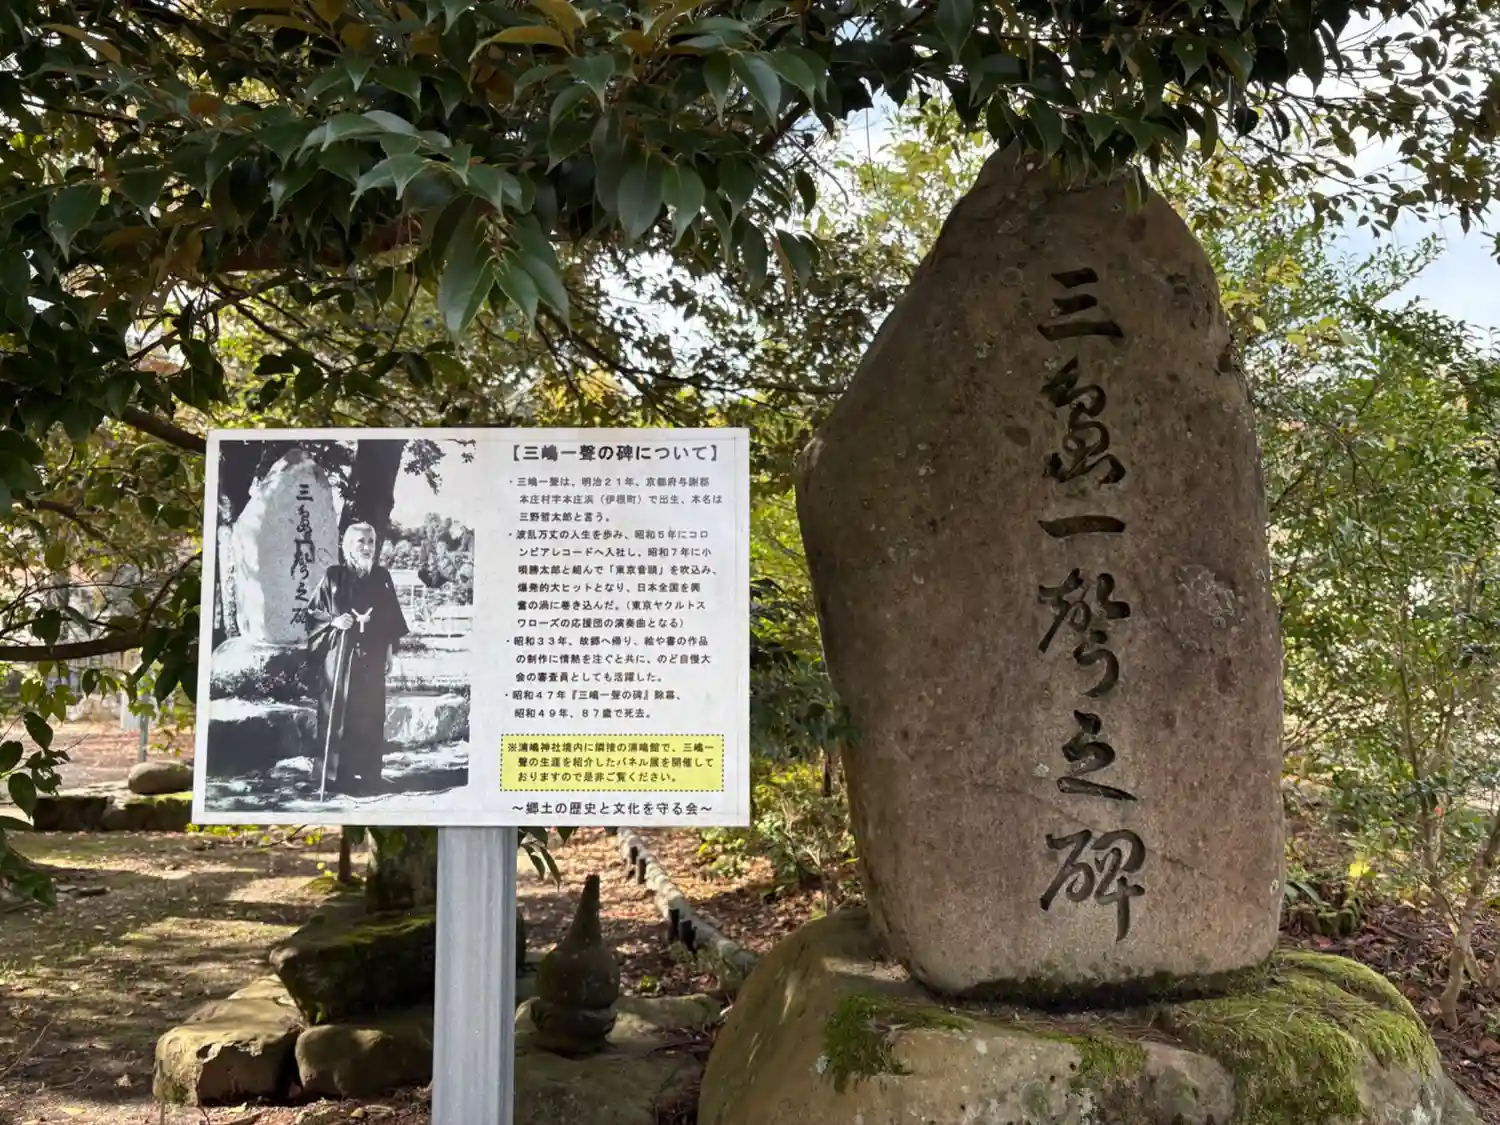 【三嶋一聲の碑について】
・三嶋一聲は、明治21年、京都府与謝郡
本庄村字本庄浜（伊根町）で出生、本名は
三野哲太郎と言う。
・波乱万丈の人生を歩み、昭和5年にコロ
ンビアレコードへ入社し、昭和7年に小
唄勝太郎と組んで「東京音頭」を吹込み、
爆発的大ヒットとなり、日本全国を興
奮の渦に巻き込んだ。（東京ヤクルトス
ワローズの応援団の演奏曲となる）
・昭和33年、故郷へ帰り、絵や書の作品
の制作に情熱を注ぐと共に、のど自慢大
会の審査員としても活躍した。
・昭和47年『三嶋一聲の碑』除幕、
昭和49年、87歳で死去。
※浦嶋神社境内に隣接の浦嶋館で、三嶋一
聲の生涯を紹介したパネル展を開催して
おりますので是非ご覧ください。
～郷土の歴史と文化を守る会～
三嶌一聲之碑
三嶌一聲之碑